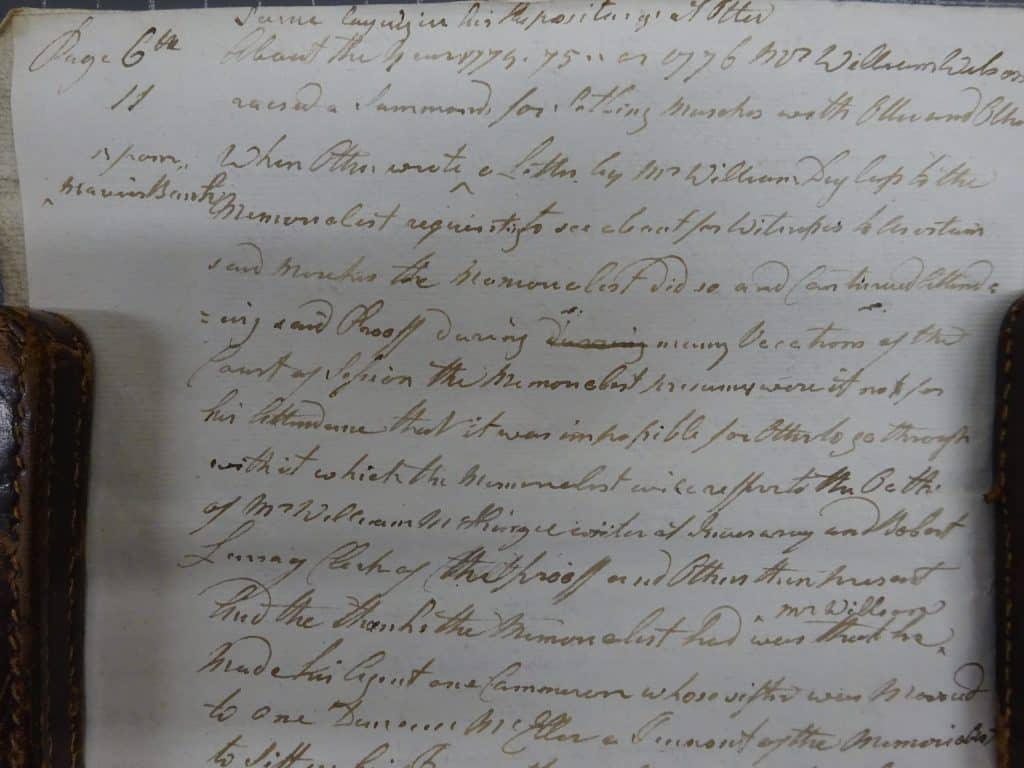 Same laying in his Repositorys at Otter
Page 6th About the year 1774. 75 .. or 1776 Mr William Wilson
11 raised a Summonds for setling Marches with Otter and Other
When Otter wrote a Letter by Mr William to the
from
Marion Bank
Memorialist requisting to see about for Witnesses to Ascertain
said Marches the Memorialist did so and Continued Attend=
=ing said Prooff during during many Vecations of the
Court of Session the Memorialist presumes were it not for
his Attendance that it was impossible for Otter to go through
with it which the Memorialist will reffer to the Oaths
of Mr William writer at Inveraray and Robert
Clerk of the prooff and Others then present
And the thanks the Memorialist had was that he
Mr Willson
Made his Agent one Cammeron whose sister was Married
to one Duncan a Tennent of the Memorialist
to